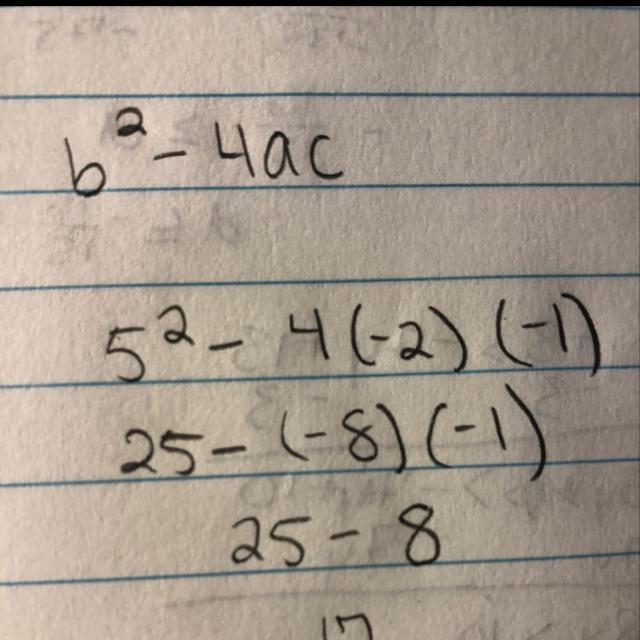 b² - 4ac
5² - 4(-2)(-1)
25 - (-8)(-1)
25 - 8
17